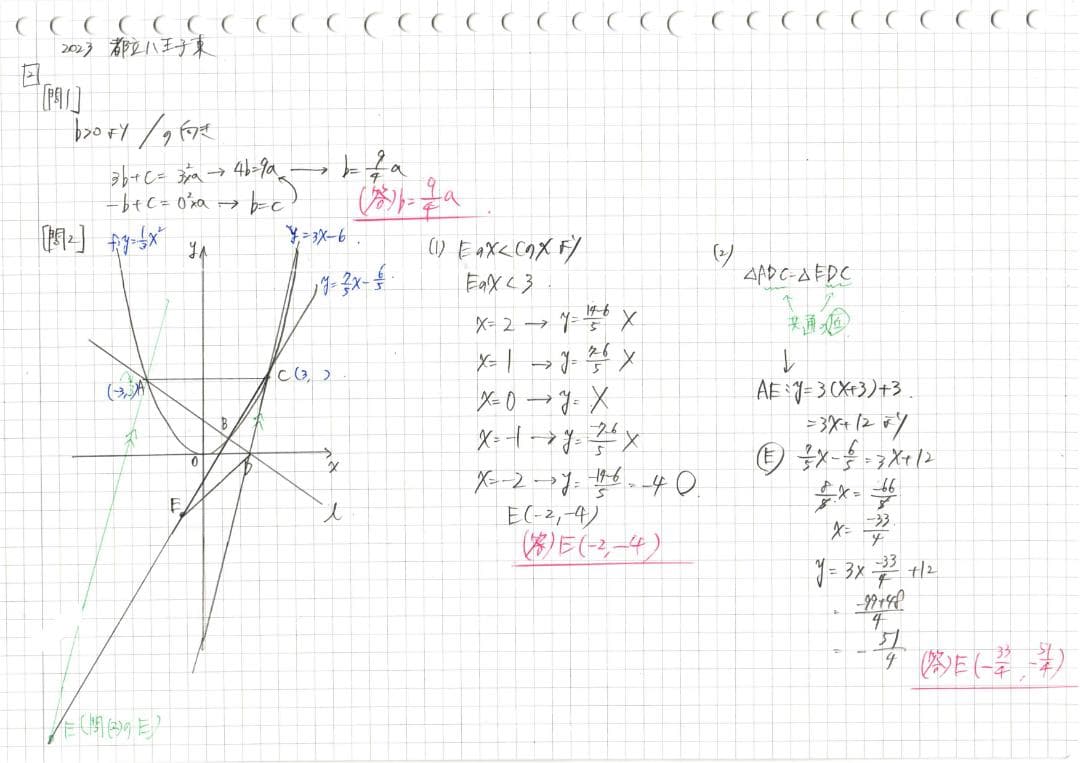 2023 都立八王子東
[2]
[問1]
b>0より /の向き
3b+c=3²×a→4b=9a→b=9/4a
-b+c=0²×a→b=c
(答)b=9/4a
[問2]
f:y=1/3x²
y
y=3x-6
y=7/5x-6/5
(-3,3)A
C(3, )
B
O
D
x
E
l
E(問(2)のE)
(1) Eのx<Cのxより
Eのx<3
x=2→y=14-6/5 ×
x=1→y=7-6/5 ×
x=0→y= ×
x=-1→y=-7-6/5 ×
x=-2→y=-14-6/5=-4 ○
E(-2,-4)
(答)E(-2,-4)
(2)
△ADC=△EDC
共通→
↓
AE:y=3(x+3)+3
=3x+12より
E 7/5x-6/5=3x+12
8/5x=-66/5
x=-33/4
y=3×-33/4+12
=-99+48/4
=-51/4
(答)E(-33/4,-51/4)